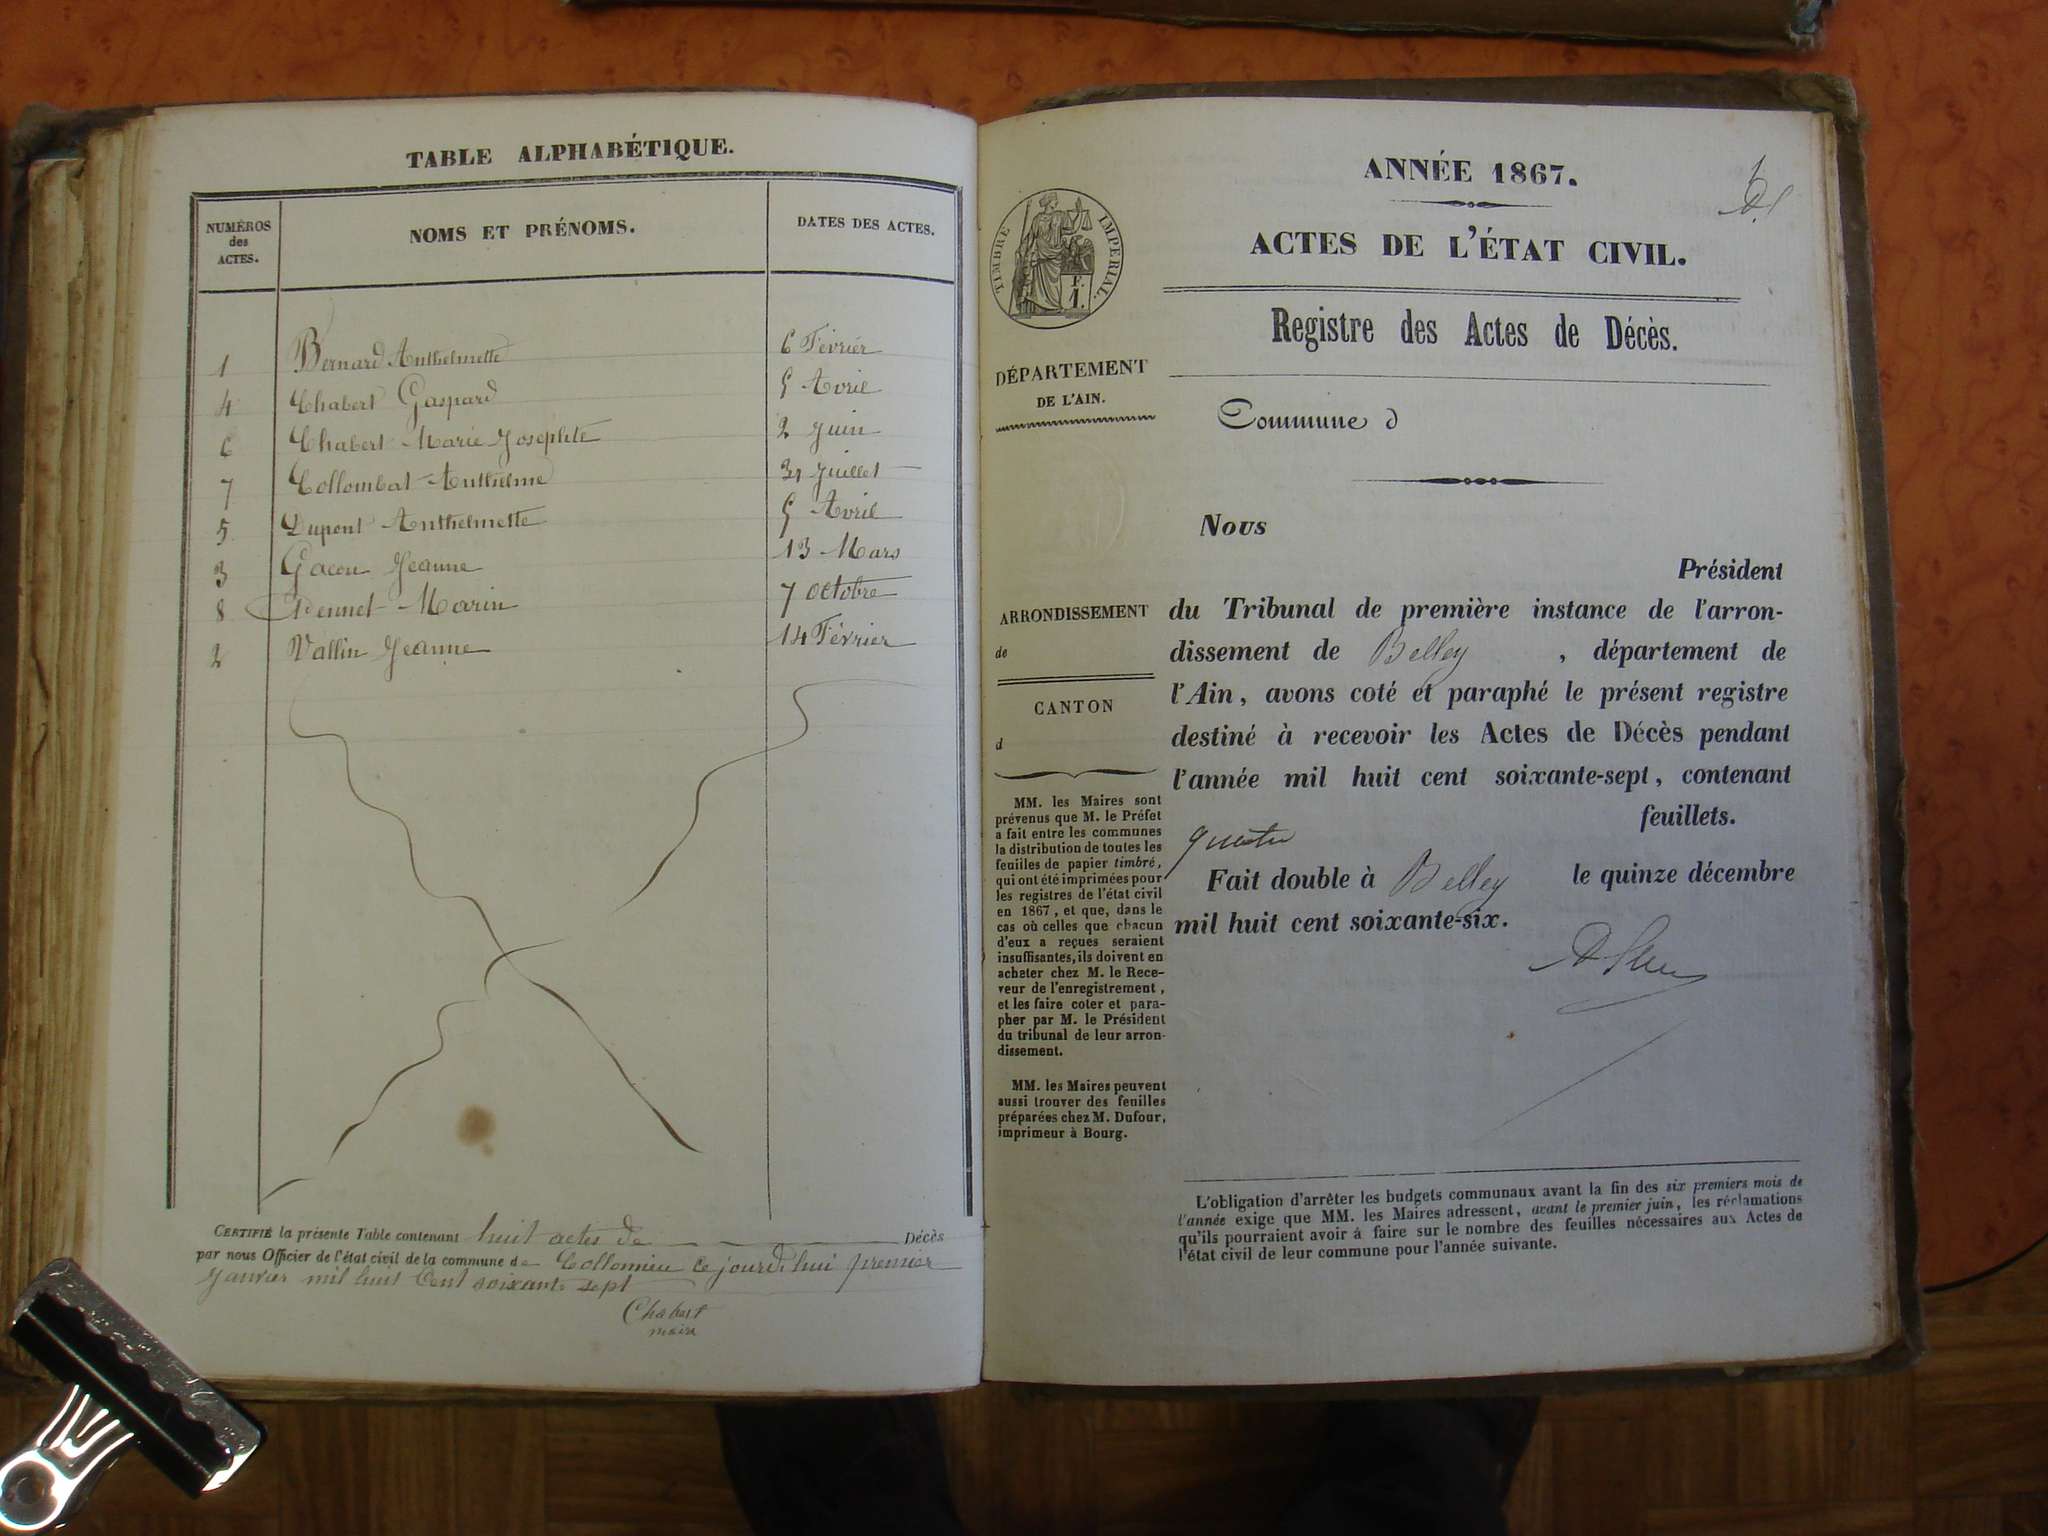 TABLE ALPHABÉTIQUE.
NUMÉROS des ACTES. NOMS ET PRÉNOMS. DATES DES ACTES.
1 Bernard Anthelmette 6 Février
4 Chabert Gaspard 5 Avril
6 Chabert Marie Josephte 2 Juin
7 Collombat Anthelme 31 Juillet
5 Dupont Anthelmette 5 Avril
3 Gacon Jeanne 13 Mars
8 Pennet Marin 7 Octobre
2 Vallin Jeanne 14 Février
CERTIFIÉ la présente Table contenant huit actes de Décès
par nous Officier de l'état civil de la commune de Collomieu ce jourd'hui premier
Janvier mil huit Cent soixante sept
Chabert
maire
ANNÉE 1867.
ACTES DE L'ÉTAT CIVIL.
Registre des Actes de Décès.
TIMBRE IMPERIAL.
F.
1.
DÉPARTEMENT
DE L'AIN.
Commune d
Nous
Président
du Tribunal de première instance de l'arron-
dissement de Belley , département de
l'Ain, avons coté et paraphé le présent registre
destiné à recevoir les Actes de Décès pendant
l'année mil huit cent soixante-sept, contenant
quatre feuillets.
Fait double à Belley le quinze décembre
mil huit cent soixante-six.
ARRONDISSEMENT
de
CANTON
d
MM. les Maires sont
prévenus que M. le Préfet
a fait entre les communes
la distribution de toutes les
feuilles de papier timbré,
qui ont été imprimées pour
les registres de l'état civil
en 1867, et que, dans le
cas où celles que chacun
d'eux a reçues seraient
insuffisantes, ils doivent en
acheter chez M. le Rece-
veur de l'enregistrement,
et les faire coter et para-
pher par M. le Président
du tribunal de leur arron-
dissement.
MM. les Maires peuvent
aussi trouver des feuilles
préparées chez M. Dufour,
imprimeur à Bourg.
L'obligation d'arrêter les budgets communaux avant la fin des six premiers mois de
l'année exige que MM. les Maires adressent, avant le premier juin, les réclamations
qu'ils pourraient avoir à faire sur le nombre des feuilles nécessaires aux Actes de
l'état civil de leur commune pour l'année suivante.